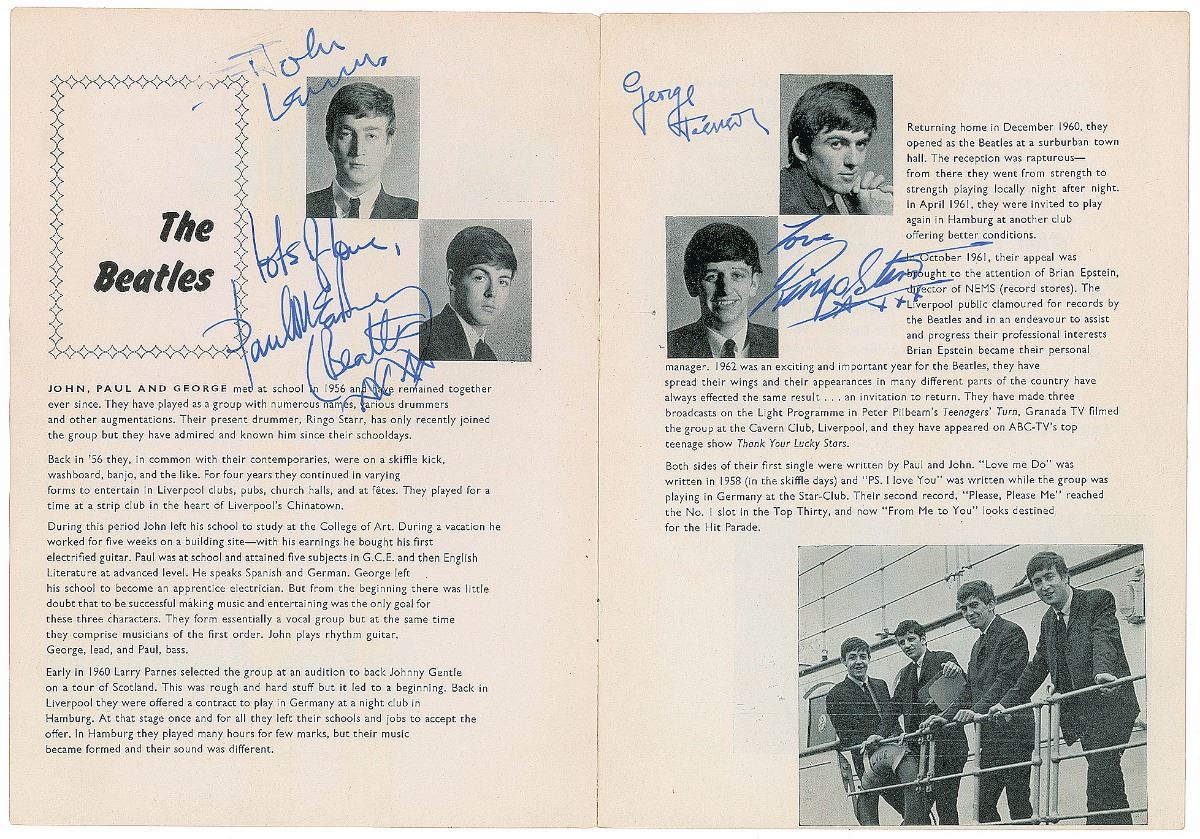 John
Lennon
The
Beatles
lots of love,
Paul McCartney
(Beatles)
XXX
JOHN, PAUL AND GEORGE met at school in 1956 and have remained together
ever since. They have played as a group with numerous names, various drummers
and other augmentations. Their present drummer, Ringo Starr, has only recently joined
the group but they have admired and known him since their schooldays.
Back in '56 they, in common with their contemporaries, were on a skiffle kick,
washboard, banjo, and the like. For four years they continued in varying
forms to entertain in Liverpool clubs, pubs, church halls, and at fêtes. They played for a
time at a strip club in the heart of Liverpool's Chinatown.
During this period John left his school to study at the College of Art. During a vacation he
worked for five weeks on a building site—with his earnings he bought his first
electrified guitar. Paul was at school and attained five subjects in G.C.E. and then English
Literature at advanced level. He speaks Spanish and German. George left
his school to become an apprentice electrician. But from the beginning there was little
doubt that to be successful making music and entertaining was the only goal for
these three characters. They form essentially a vocal group but at the same time
they comprise musicians of the first order. John plays rhythm guitar,
George, lead, and Paul, bass.
Early in 1960 Larry Parnes selected the group at an audition to back Johnny Gentle
on a tour of Scotland. This was rough and hard stuff but it led to a beginning. Back in
Liverpool they were offered a contract to play in Germany at a night club in
Hamburg. At that stage once and for all they left their schools and jobs to accept the
offer. In Hamburg they played many hours for few marks, but their music
became formed and their sound was different.
George
Harrison
Returning home in December 1960, they
opened as the Beatles at a surburban town
hall. The reception was rapturous—
from there they went from strength to
strength playing locally night after night.
In April 1961, they were invited to play
again in Hamburg at another club
offering better conditions.
Love
Ringo Starr
XXX
In October 1961, their appeal was
brought to the attention of Brian Epstein,
director of NEMS (record stores). The
Liverpool public clamoured for records by
the Beatles and in an endeavour to assist
and progress their professional interests
Brian Epstein became their personal
manager. 1962 was an exciting and important year for the Beatles, they have
spread their wings and their appearances in many different parts of the country have
always effected the same result . . . an invitation to return. They have made three
broadcasts on the Light Programme in Peter Pilbeam's Teenagers' Turn, Granada TV filmed
the group at the Cavern Club, Liverpool, and they have appeared on ABC-TV's top
teenage show Thank Your Lucky Stars.
Both sides of their first single were written by Paul and John. “Love me Do” was
written in 1958 (in the skiffle days) and “PS. I love You” was written while the group was
playing in Germany at the Star-Club. Their second record, “Please, Please Me” reached
the No. 1 slot in the Top Thirty, and now “From Me to You” looks destined
for the Hit Parade.